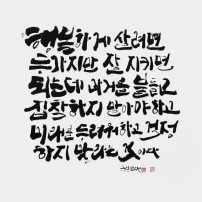 행복하게 살려면
두가지만 잘 지키면
되는데 과거를 붙들고
집착하지 말아야하고
미래를 두려워하고 걱정
하지 말라는 것이다